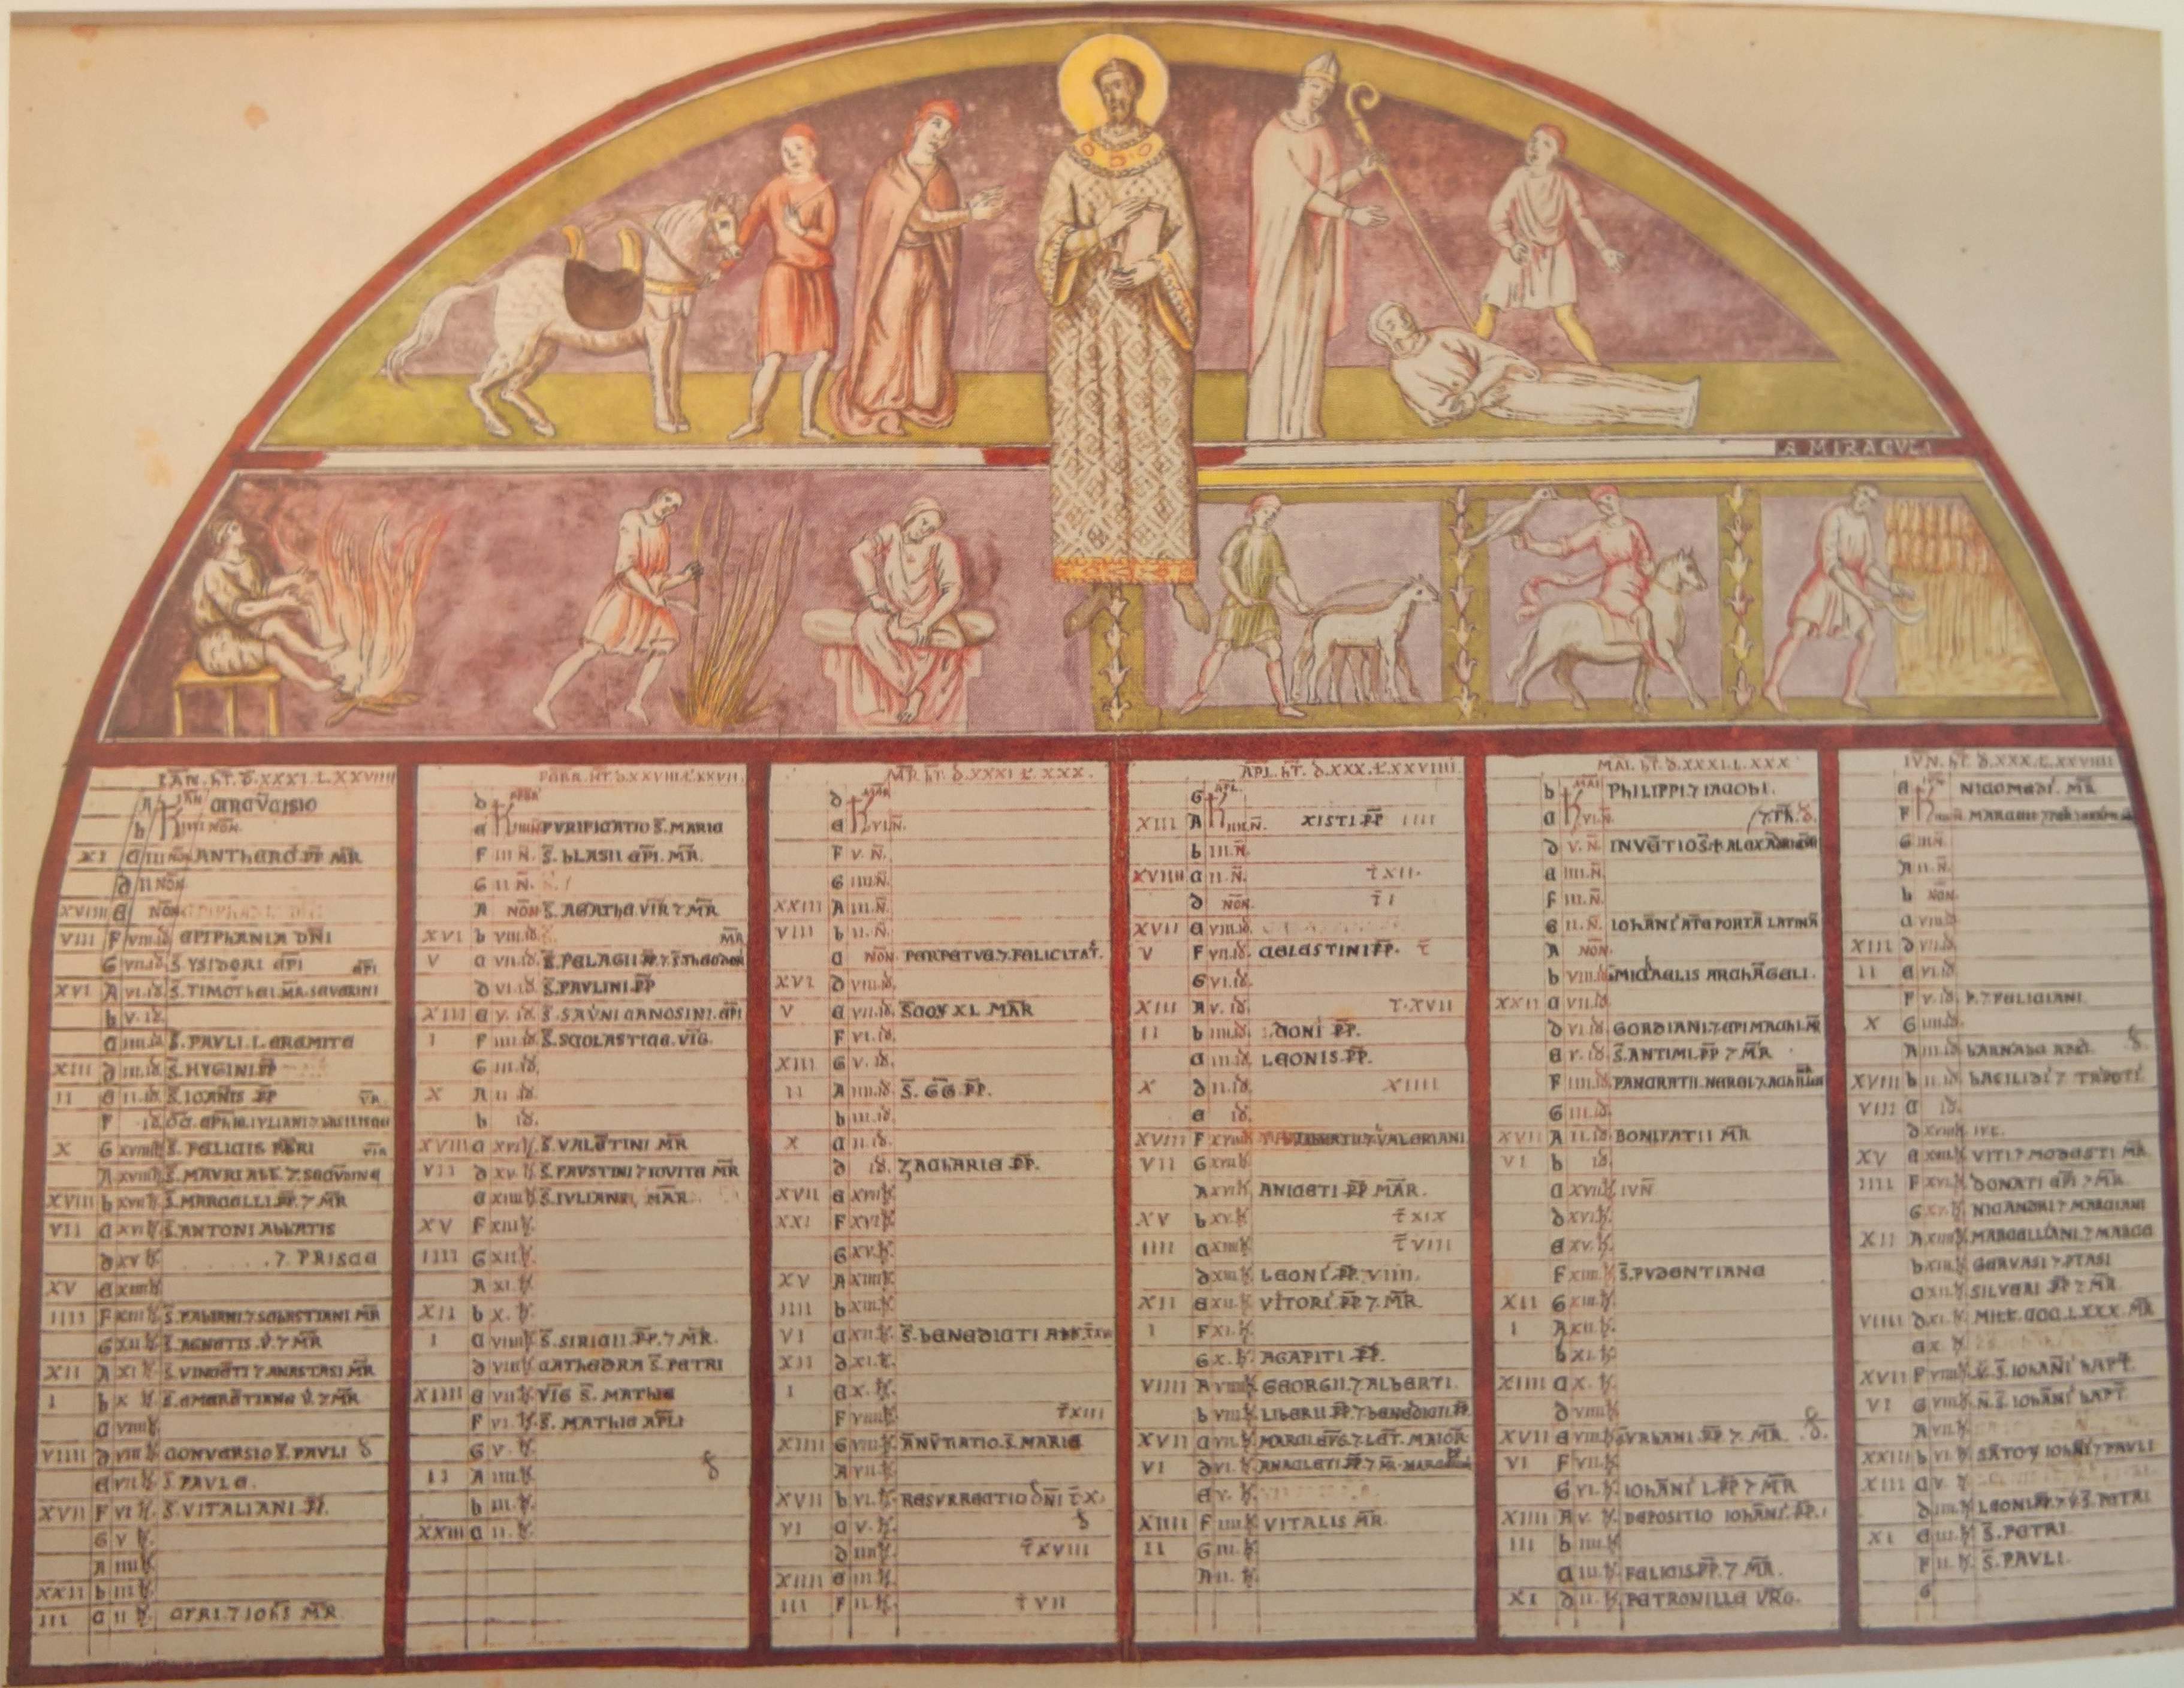 A MIRACVLA
IAN. hT. D. XXXI. L. XXVIIII
A K IAN CIRCUCISIO
b IIII NON.
XI C III NON ANTHERO PP MR
D II NON
XVIIII E NON
VIII F VIII.ID EPIPHANIA DNI
G VII.ID S YSIDORI EPI EPI
XVI A VI.ID S. TIMOTHEI MR SEVERINI
b V.ID
C IIII.ID S. PAVLI.I.EREMITE
XIII D III.ID S. HYGINI PP
II E II.ID S. IOANIS PP
F ID
X G XVIIII K S. FELICIS
A XVIII K S. MAVRI ABB. 7
XVIII b XVII K S. MARCELLI. PP. 7 MR
VII C XVI K S. ANTONI ABBATIS
D XV K . 7 PRISCE
XV E XIIII K
IIII F XIII K S. FABIANI. 7 SEBASTIANI MR
G XII K S. AGNETIS. V. 7 MR
XII A XI K S. VINCETI 7 ANASTASI MR
I b X K S. EMERETIANE V. 7 MR
C VIIII K
VIIII D VIII K CONVERSIO S. PAVLI
E VII K S. PAVLE.
XVII F VI K S. VITALIANI PP.
G V K
A IIII K
XXII b III K
III C II K CYRI. 7 IOHS MR
FEBR. HT. D. XXVIII. L. XXVII.
D K FEBR
E IIII N PVRIFICATIO S. MARIE
F III N. S. BLASII EPI. MR.
G II N.
A NON S. AGATHE VIR 7 MR
XVI b VIII.ID MR
V C VII.ID S. PELAGII PP. 7 S. THEODER
D VI.ID S. PAVLINI PP
XIII E V.ID S. SAVNI CANOSINI. EPI
I F IIII ID S. SCOLASTICE. VIG.
G III.ID
X A II ID
b ID.
XVIII C XVI K S. VALETINI MR
VII D XV K S. FAVSTINI 7 IOVITE MR
E XIIII K S. IVLIANE, MAR.
XV F XIII K
IIII G XII K
A XI. K
XII b X. K
I C VIIII K S. SIRICII. PP. 7 MR.
D VIII K CATHEDRA S. PETRI
XIIII E VII K VIG S. MATHIE
F VI. K S. MATHIE APLI
G V. K
II A IIII K
b III. K
XXIII C II. K
MR. hT. D. XXXI L. XXX.
D K MAR
E VI.N.
F V. N.
G IIII N.
XXIII A III.N.
VIII b II.N.
C NON PERPETVE. 7. FELICITAT.
XVI D VIII.ID.
V E VII.ID SCOR XL MAR
F VI.ID.
XIII G V.ID.
II A IIII ID S. GG PP.
b III.ID.
X C II.ID.
D ID. ZACHARIE PP.
XVII E XVII K
XXI F XVI K
G XV. K
XV A XIIII K
IIII b XIII K
VI C XII. K S. BENEDICTI
XII D XI. K
I E X. K
F VIIII K T XIII
XIIII G VIII K ANVTIATIO. S. MARIE
A VII K
XVII b VI. K RESVRRECTIO DNI T X.
VI C V. K
D IIII K T XVIII
XIIII E III K
III F II. K T VII
APL. hT. D. XXX. L. XXVIIII
G K APL.
XIII A IIII N. XISTI PP IIII
b III.N.
XVIIII C II.N. T XII.
D NON. T I
XVII E VIII.ID
V F VII.ID. CELESTINI PP. T
G VI.ID.
XIII A V.ID. T. XVII
II b IIII.ID LEONI PP.
C III.ID LEONIS. PP.
X D II.ID. XIIII
E ID.
XVIII F XVIII K 7 VALERIANI.
VII G XVII K
A XVI K ANICETI PP MAR.
XV b XV. K T XIX
IIII C XIIII K T VIII
D XIII K LEONI. PP. VIIII.
XII E XII K VITORI PP 7 MR.
I F XI. K
G X. K AGAPITI PP.
VIIII A VIIII K GEORGII. 7 ALBERTI.
b VIII K LIBERII PP. 7 BENEDICTI PP.
XVII C VII K 7 LET. MAIOR
VI D VI. K ANACLETI. PP. 7 MR.
E V. K
XIIII F IIII K VITALIS MR.
II G III. K
A II. K
MAI. hT. D. XXXI. L. XXX
b K MAI PHILIPPI 7 IACOBI.
C VI.N
D V.N. INVETIO S † ALEXADRI
E IIII.N.
F III.N.
G II.N. IOHANI ATE PORTA LATINA
A NON.
b VIII.ID MICHAELIS ARCHAGELI.
XXII C VII.ID.
D VI.ID GORDIANI. 7 EPIMACHI. MR
E V.ID S. ANTIMI. PP 7 MR
F IIII.ID PANCRATII. NEREI 7 ACHILLEI
G III.ID.
XVII A II.ID BONIFATII MR
VI b ID.
C XVII K IVN
D XVI K
E XV. K
F XIIII K S. PVDENTIANE
XII G XIII. K
I A XII K
b XI. K
XIIII C X. K
D VIIII K
XVII E VIII K S. VRBANI. PP 7. MR.
VI F VII. K
G VI. K IOHANI I. PP 7 MR
XIIII A V. K DEPOSITIO IOHANI. PP.
III b IIII K
C III. K FELICIS. PP. 7. MR.
XI D II. K PETRONILLE VRG.
IVN. hT. D. XXX. L. XXVIIII
E K IVN NICOMEDI. MR
F IIII N MARCELLI
G III N
A II.N.
b NON.
C VIII.ID
XIII D VII.ID
II E VI.ID
F V.ID P. 7 FELICIANI.
X G IIII.ID
A III.ID BARNABE APLI.
XVIII b II.ID BASILIDI 7
VIII C ID.
D XVIII K IVL.
XV E XVII K VITI. 7 MODESTI MR
IIII F XVI K DONATI EPI 7 MR.
G XV. K NICANDRI 7 MARCIANI
XII A XIIII K MARCELLIANI. 7 MARCE
b XIII K GERVASI 7 PTASI
C XII K SILVERI PP 7 MR.
VIIII D XI. K MILL. CCC. LXXX MR
E X. K
XVII F VIIII K V. S. IOHANI BAPT.
VI G VIII K N. S. IOHANI BAPT
A VII. K
XXIII b VI. K SATOR IOHANI 7 PAVLI
XIII C V. K
D IIII K LEONI. PP. 7 V. S. PETRI
XI E III. K S. PETRI.
F II. K S. PAVLI.
G